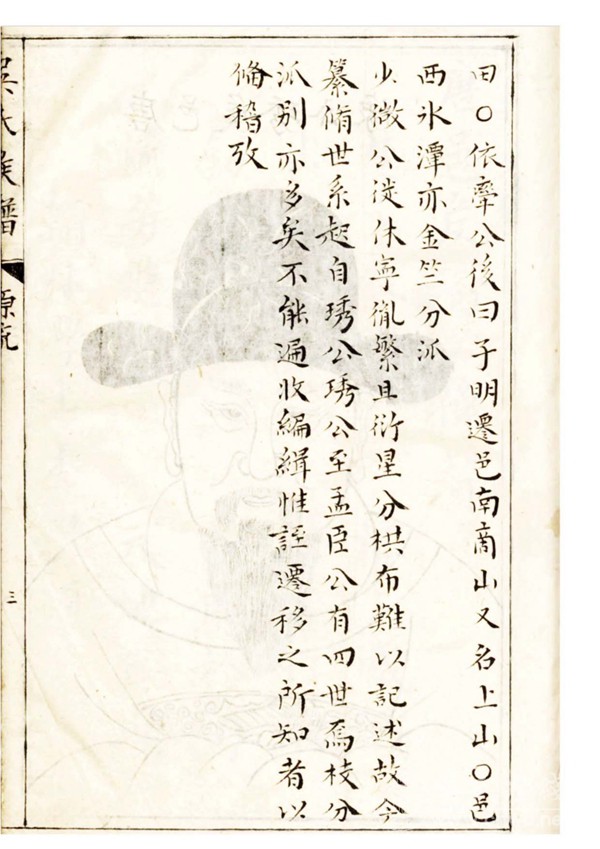 田〇依公後曰子明遷邑南商山又名上山〇邑
西氷潭亦金竺分派
少微公從休寧胤繁且衍星分棋布難以記述故今
纂脩世系起自琇公琇公至孟臣公有四世焉枝分
派别亦多矣不能遍收編緝惟誌遷移之所知者以
俻稽攷
吳氏族譜
源流
三